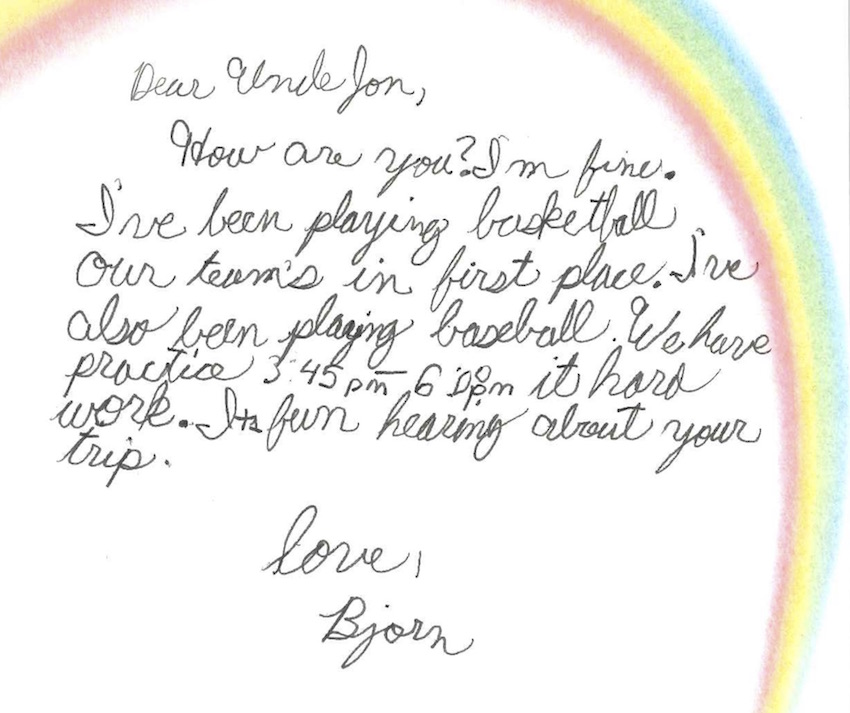 Dear Uncle Jon,
How are you? I'm fine.
I've been playing basketball
our team's in first place. I've
also been playing baseball. We have
practice 3:45pm-6:00pm it hard
work. Its fun hearing about your
trip.
love,
Bjorn